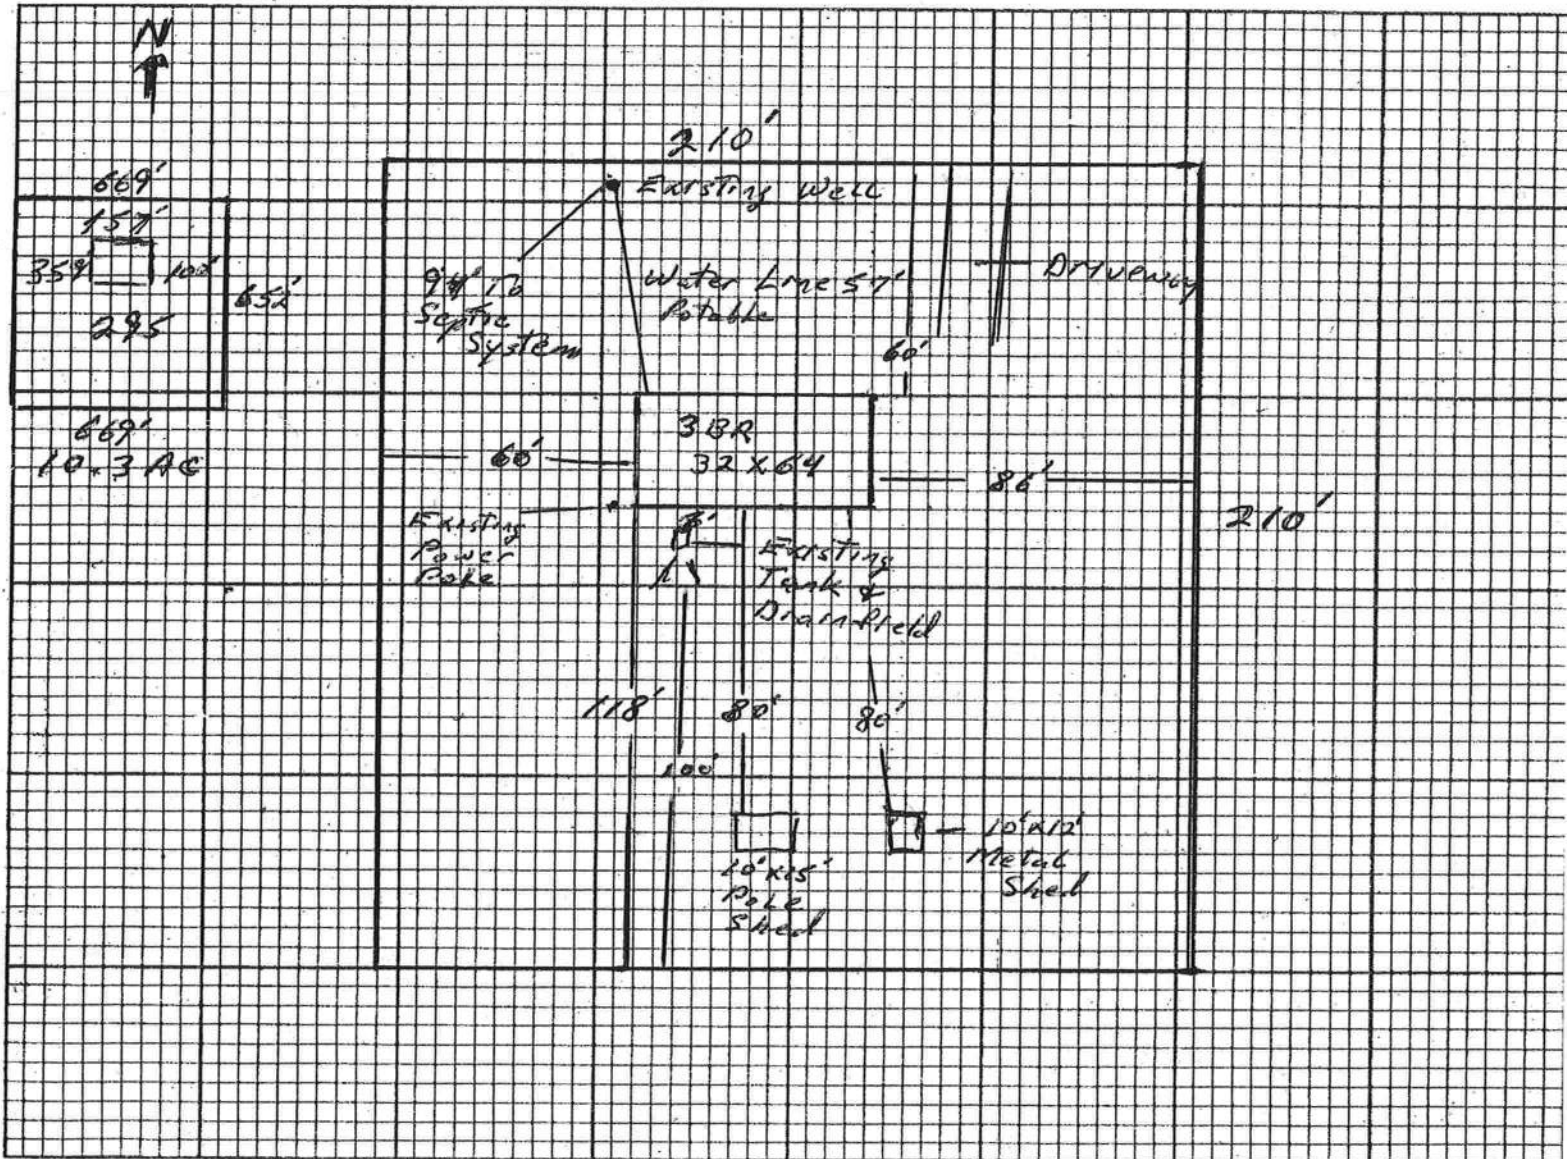 N
210'
669'
157'
359'
100'
652'
295
669'
10.3 AC
Existing Well
94' To
Septic
System
Water Line 57'
Potable
60'
Driveway
3BR
32 X 64
60'
86'
210'
Existing
Power
Pole
Existing
Tank &
Drainfield
118'
80'
80'
100'
10'x15'
Pole
Shed
10'x12'
Metal
Shed